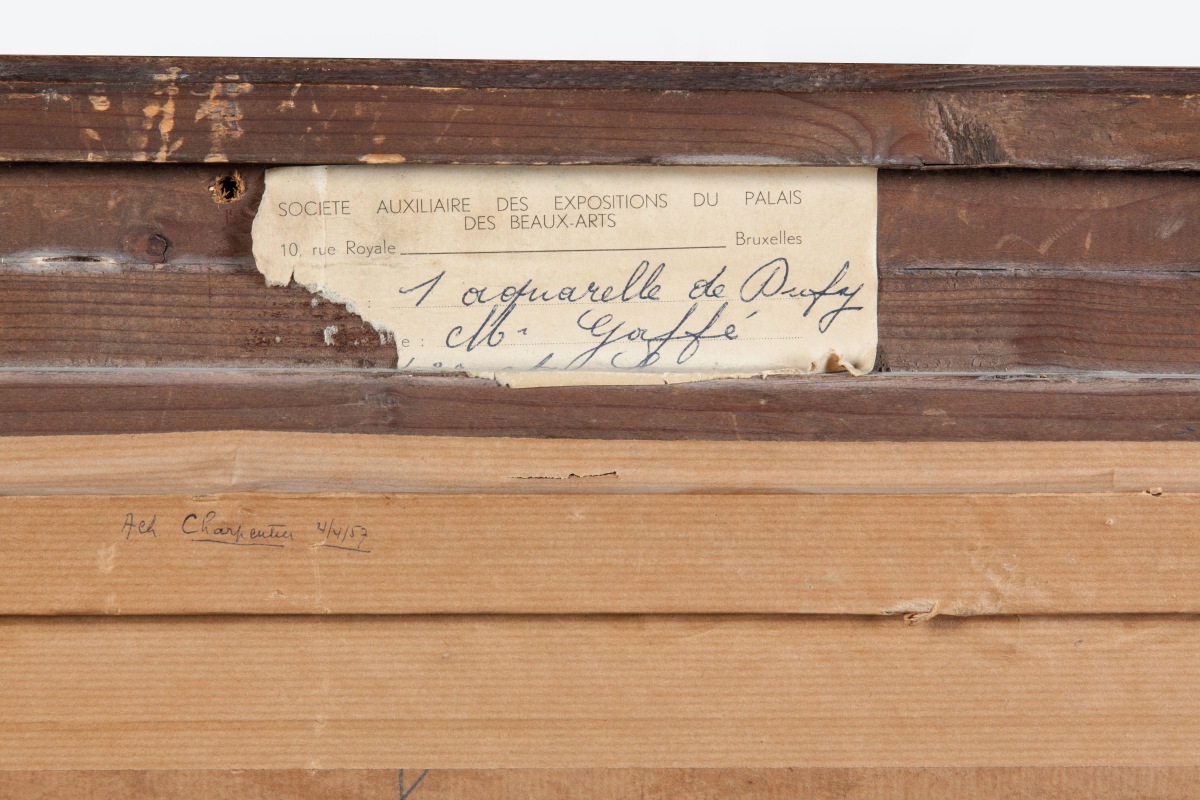 SOCIETE AUXILIAIRE DES EXPOSITIONS DU PALAIS
DES BEAUX-ARTS
10, rue Royale Bruxelles
1 aquarelle de Dufy
e : Mr Gaffé
Ach Charpentier 4/4/57